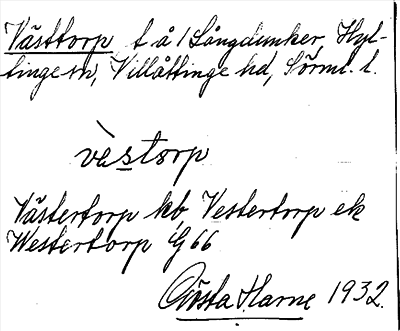 Västtorp t å 1 Långdunker, Hyl-
tinge sn, Villåttinge hd, Sörml. l.
västorp
Västertorp kb Vestertorp ek
Westertorp G 66
Gösta Harne 1932.